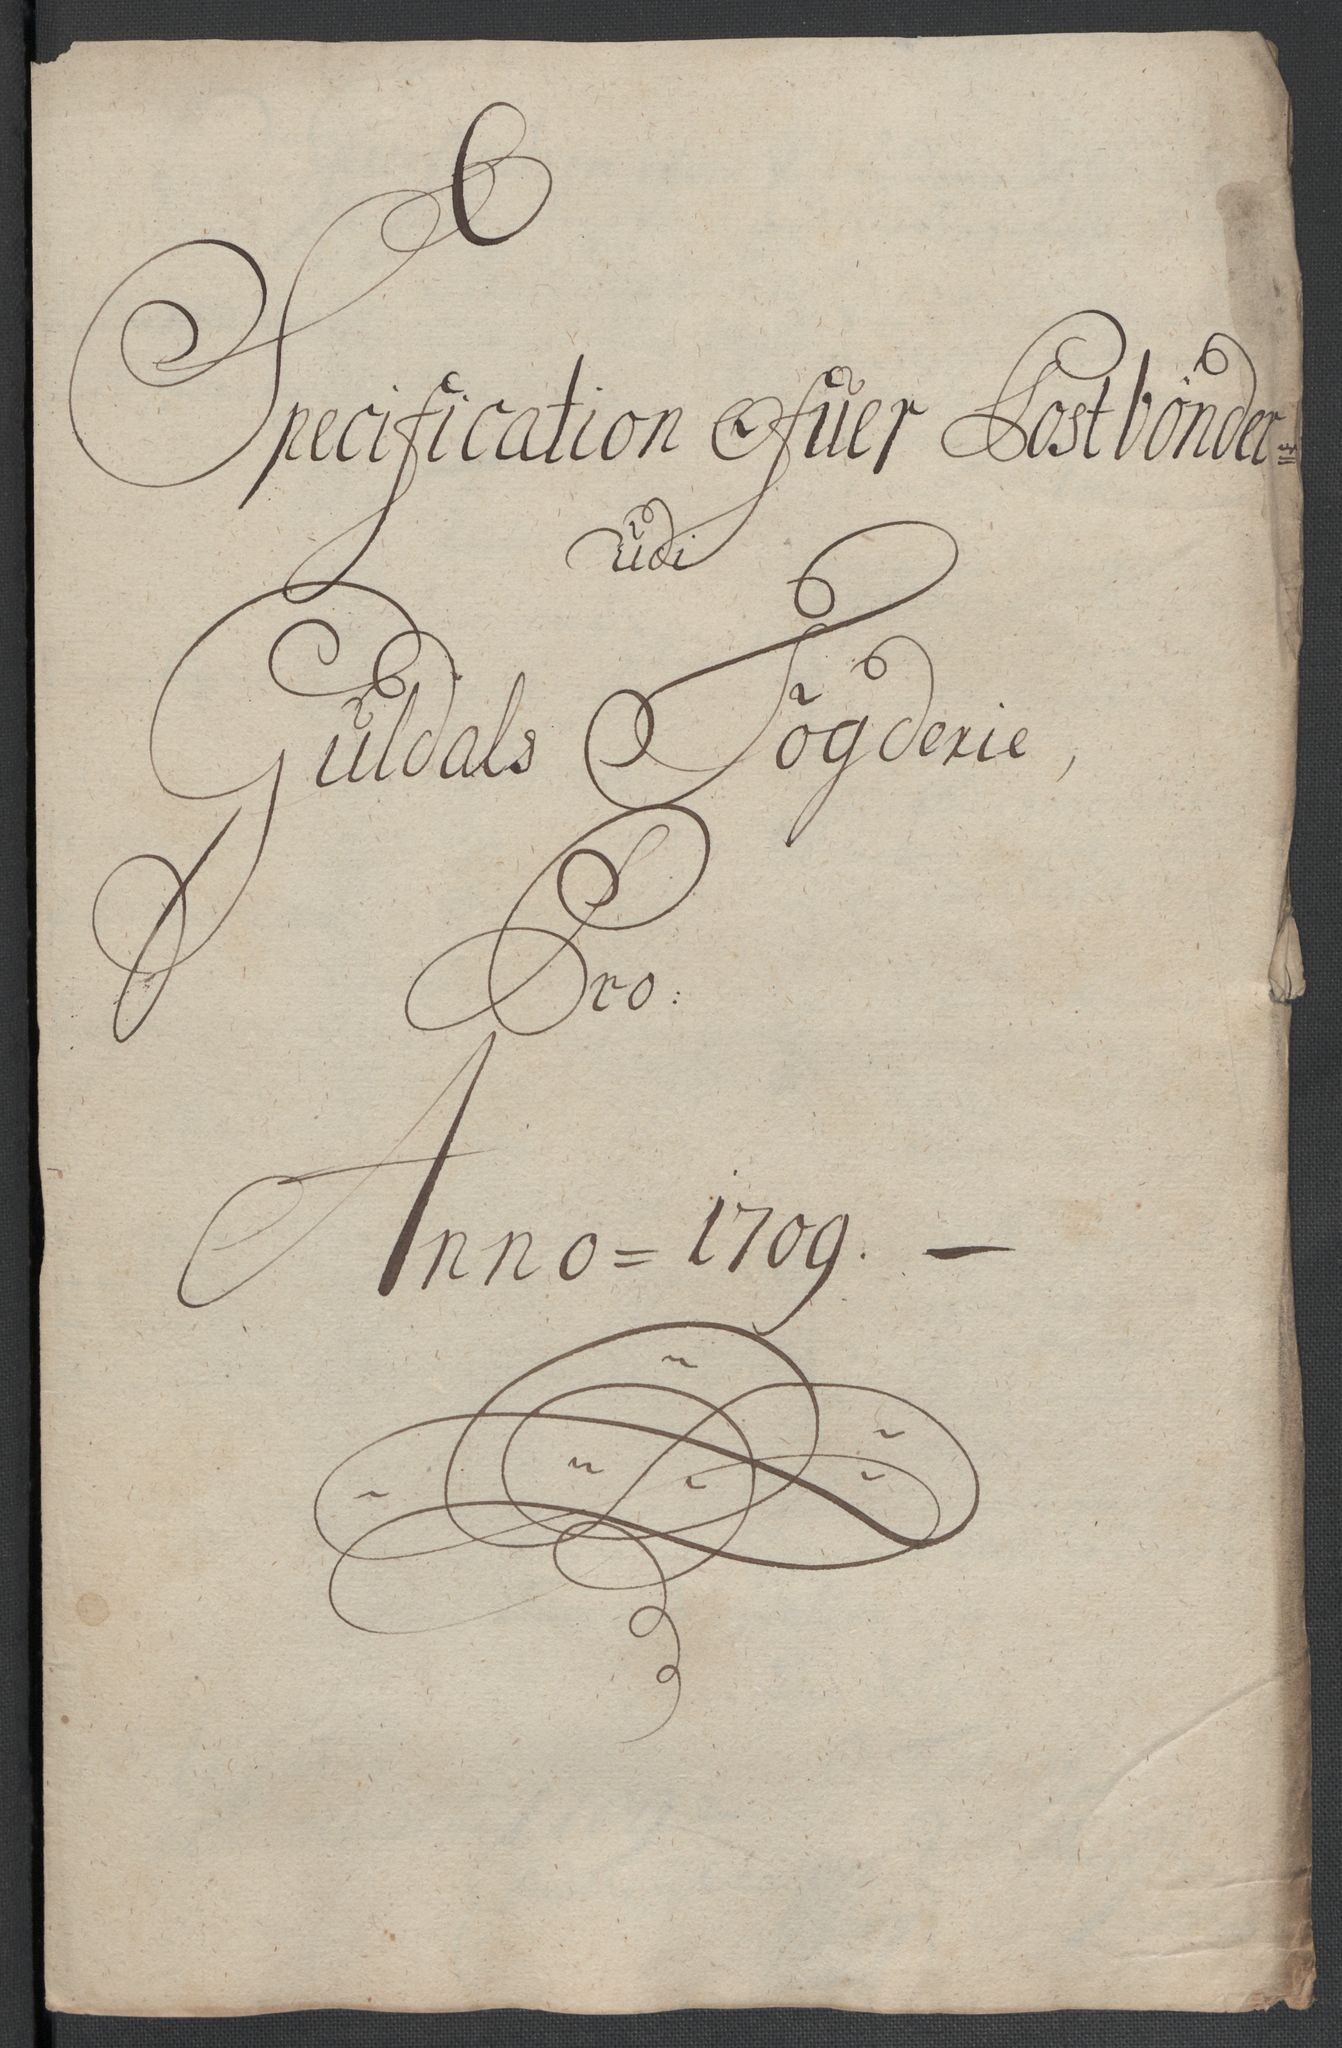 Specification Ofuer Postbönder
udi
Guldals Fogderie,
Pro:
Anno = 1709. —